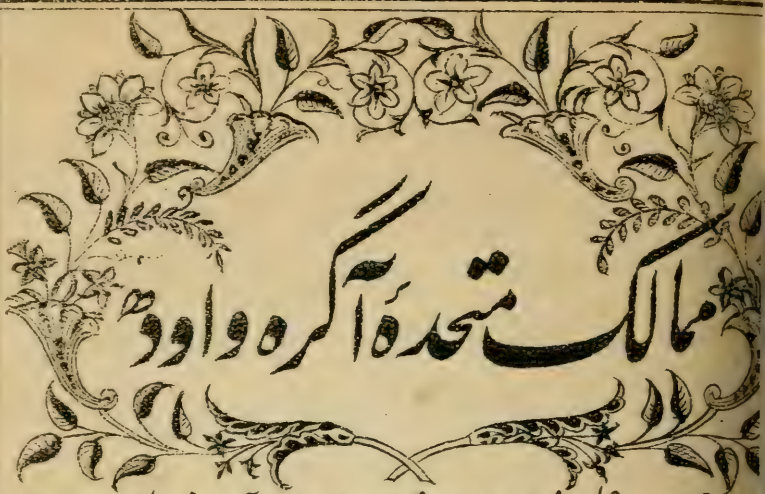 ممالک متحدۂ آگرہ و اودھ